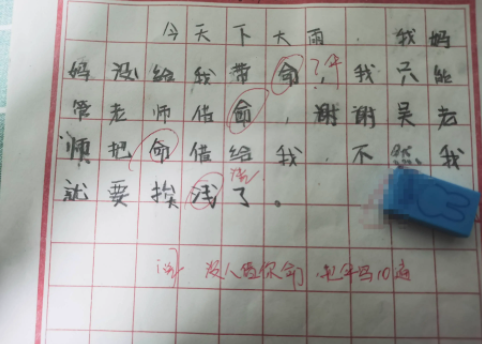 今天下大雨，我妈
妈没给我带命，我只能
?伞
管老师借命，谢谢吴老
师把命借给我，不然我
就要挨浅了。
没人要你命，把伞写10遍